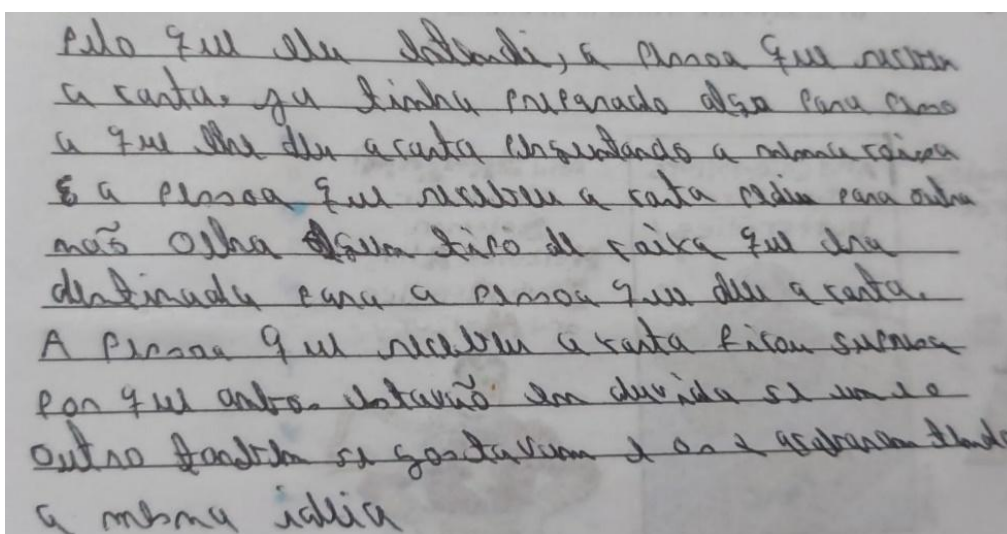 Pelo que eu entendi, a pessoa que recebeu
a carta, ja tinha preparado algo para
a que lhe deu a carta a mesma coisa
E a pessoa que recebeu a carta pediu para outra
mão Olha algum tipo de caixa que era
destinada para a pessoa que deu a carta.
A pessoa que recebeu a carta ficou supresa
por que anbos estavão em duvida se um e o
outro tanbem se gostavam e os 2 acabaram tendo
a mesma